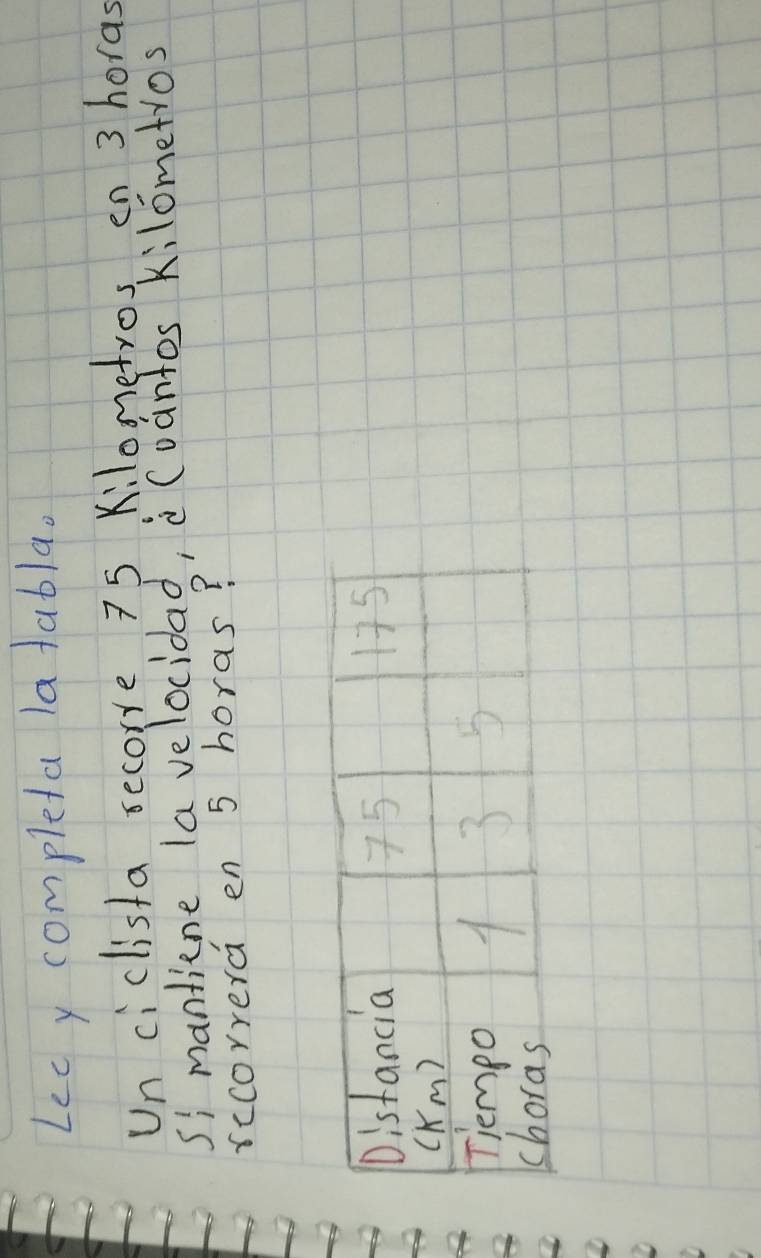 Lee y completa la tabla.
Un ciclista recorre 75 Kilometros en 3 horas
Si mantiene la velocidad, ¿Cuántos Kilómetros
recorrerá en 5 horas?
Distancia (Km) 75 175
Tiempo (horas 1 3 5